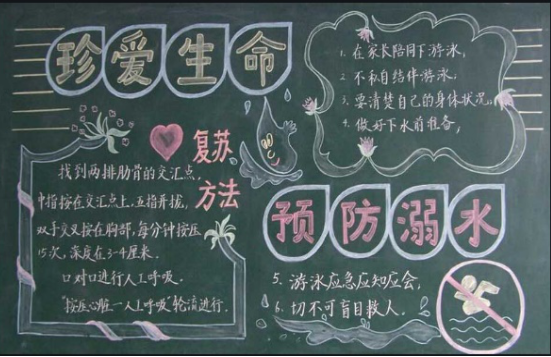 珍爱生命
复苏
方法
找到两排肋骨的交汇点,
中指按在交汇点上,五指并拢,
双手交叉按在胸部,每分钟按压
15次,深度在3-4厘米.
口对口进行人工呼吸.
"按压心脏一人工呼吸"轮流进行.
1. 在家长陪同下游泳,
2. 不私自结伴游泳.
3. 要清楚自己的身体状况。
4. 做好下水前准备,
预防溺水
5. 游泳应急应知应会,
6. 切不可盲目救人.